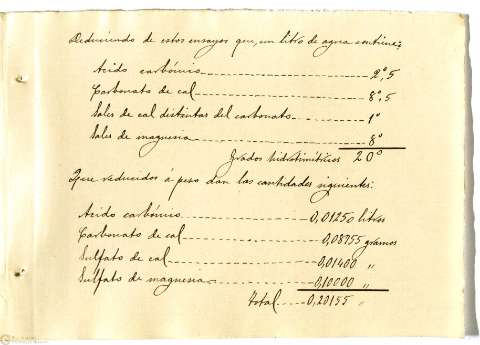 Deduciendo de estos ensayos que, un litro de agua contiene:
Acido carbónico 2°,5
Carbonato de cal 8°,5
Sales de cal distintas del carbonato 1°
Sales de magnesia 8°
Grados hidrotimétricos 20°
Que reducidos á peso dan las cantidades siguientes:
Acido carbónico 0,01250 litros
Carbonato de cal 0,08755 gramos
Sulfato de cal 0,01400 "
Sulfato de magnesia 0,10000 "
Total 0,20155 "